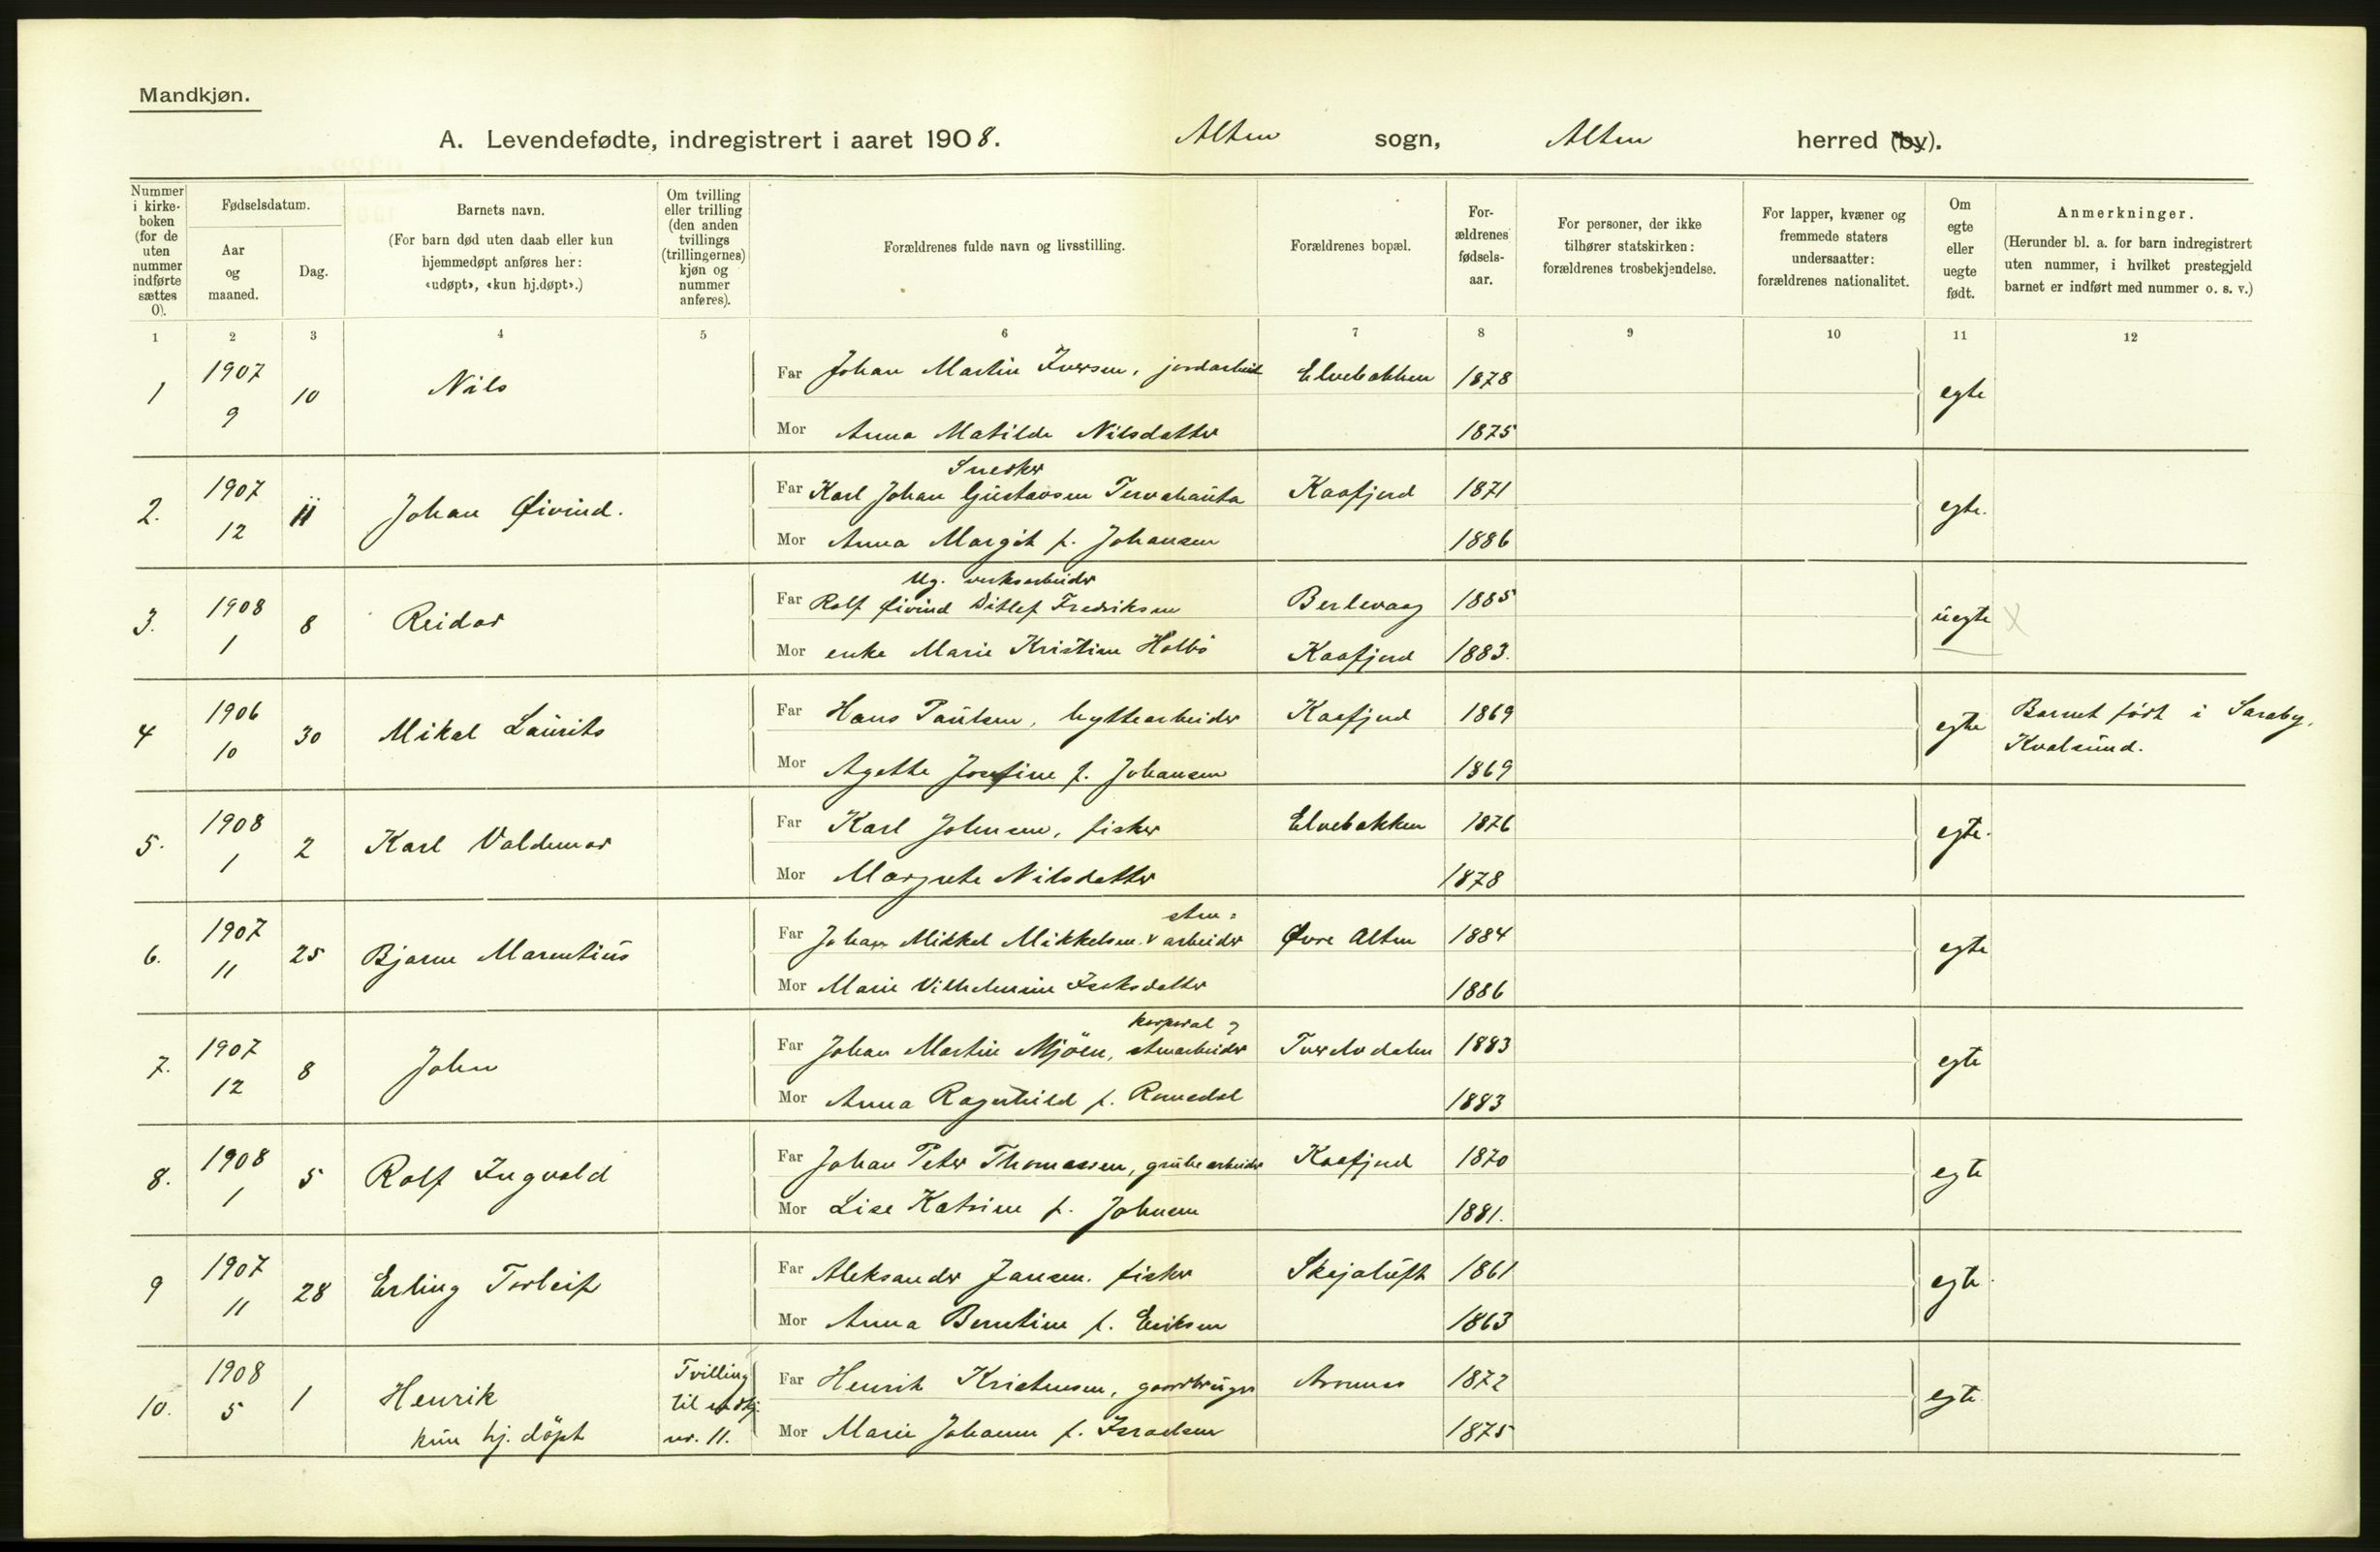 Mandkjøn.
A. Levendefødte, indregistrert i aaret 1908. Alten sogn, Alten herred (by).
Nummer i kirke-boken (for de uten nummer indførte sættes 0).
Fødselsdatum.
Aar og maaned.
Dag.
Barnets navn.
(For barn død uten daab eller kun hjemmedøpt anføres her: «udøpt», «kun hj.døpt».)
Om tvilling eller trilling (den anden tvillings (trillingernes) kjøn og nummer anføres).
Forældrenes fulde navn og livsstilling.
Forældrenes bopæl.
For-ældrenes fødsels-aar.
For personer, der ikke tilhører statskirken: forældrenes trosbekjendelse.
For lapper, kvæner og fremmede staters undersaatter: forældrenes nationalitet.
Om egte eller uegte født.
Anmerkninger.
(Herunder bl. a. for barn indregistrert uten nummer, i hvilket prestegjeld barnet er indført med nummer o. s. v.)
1 2 3 4 5 6 7 8 9 10 11 12
1 1907 9 10 Nils Far Johan Martin Iversen, jordarbeid Elvebakken 1878 egte
Mor Anna Matilde Nilsdatter 1875
Snedker
2. 1907 12 11 Johan Øivind. Far Karl Johan Gustavsen Tervahauta Kaafjord 1871 egte.
Mor Anna Margit f. Johansen 1886
Ug. verksarbeider
3. 1908 1 8 Reidar Far Rolf Øivind Ditlef Fredriksen Berlevaag 1885 uegte x
Mor enke Marie Kristine Holbø Kaafjord 1883.
4 1906 10 30 Mikal Laurits Far Hans Paulsen, hyttearbeider Kaafjord 1869 egte Barnet født i Saraby,
Kvalsund.
Mor Agathe Josefine f. Johansen 1869
5. 1908 1 2 Karl Valdemar Far Karl Johnsen, fisker Elvebakken 1876 egte.
Mor Margrete Nilsdatter 1878
6. 1907 11 25 Bjarne Marentius Far Johan Mikkel Mikkelsen. v arbeider Øvre Alten 1884 egte
Mor Marie Vilhelmine Isaksdatter 1886
korporal
7. 1907 12 8 John Far Johan Martin Mjöen, Tverelvdalen 1883 egte
Mor Anna Ragnhild f. Romedal 1883
8. 1908 1 5 Rolf Ingvald Far Johan Peter Thomassen, grubearbeider Kaafjord 1870 egte
Mor Lise Katrine f. Johnsen 1881.
9 1907 11 28 Erling Torleif Far Aleksander Jansen. fisker Skajaluft 1861 egte.
Mor Anna Berntine f. Eriksen 1863
10. 1908 5 1 Henrik Tvilling Far Henrik Kristensen, gaardbruger Aronnes 1872 egte
kun hj. döpt til kj. nr. 11. Mor Marie Johanne f. Israelsen 1875